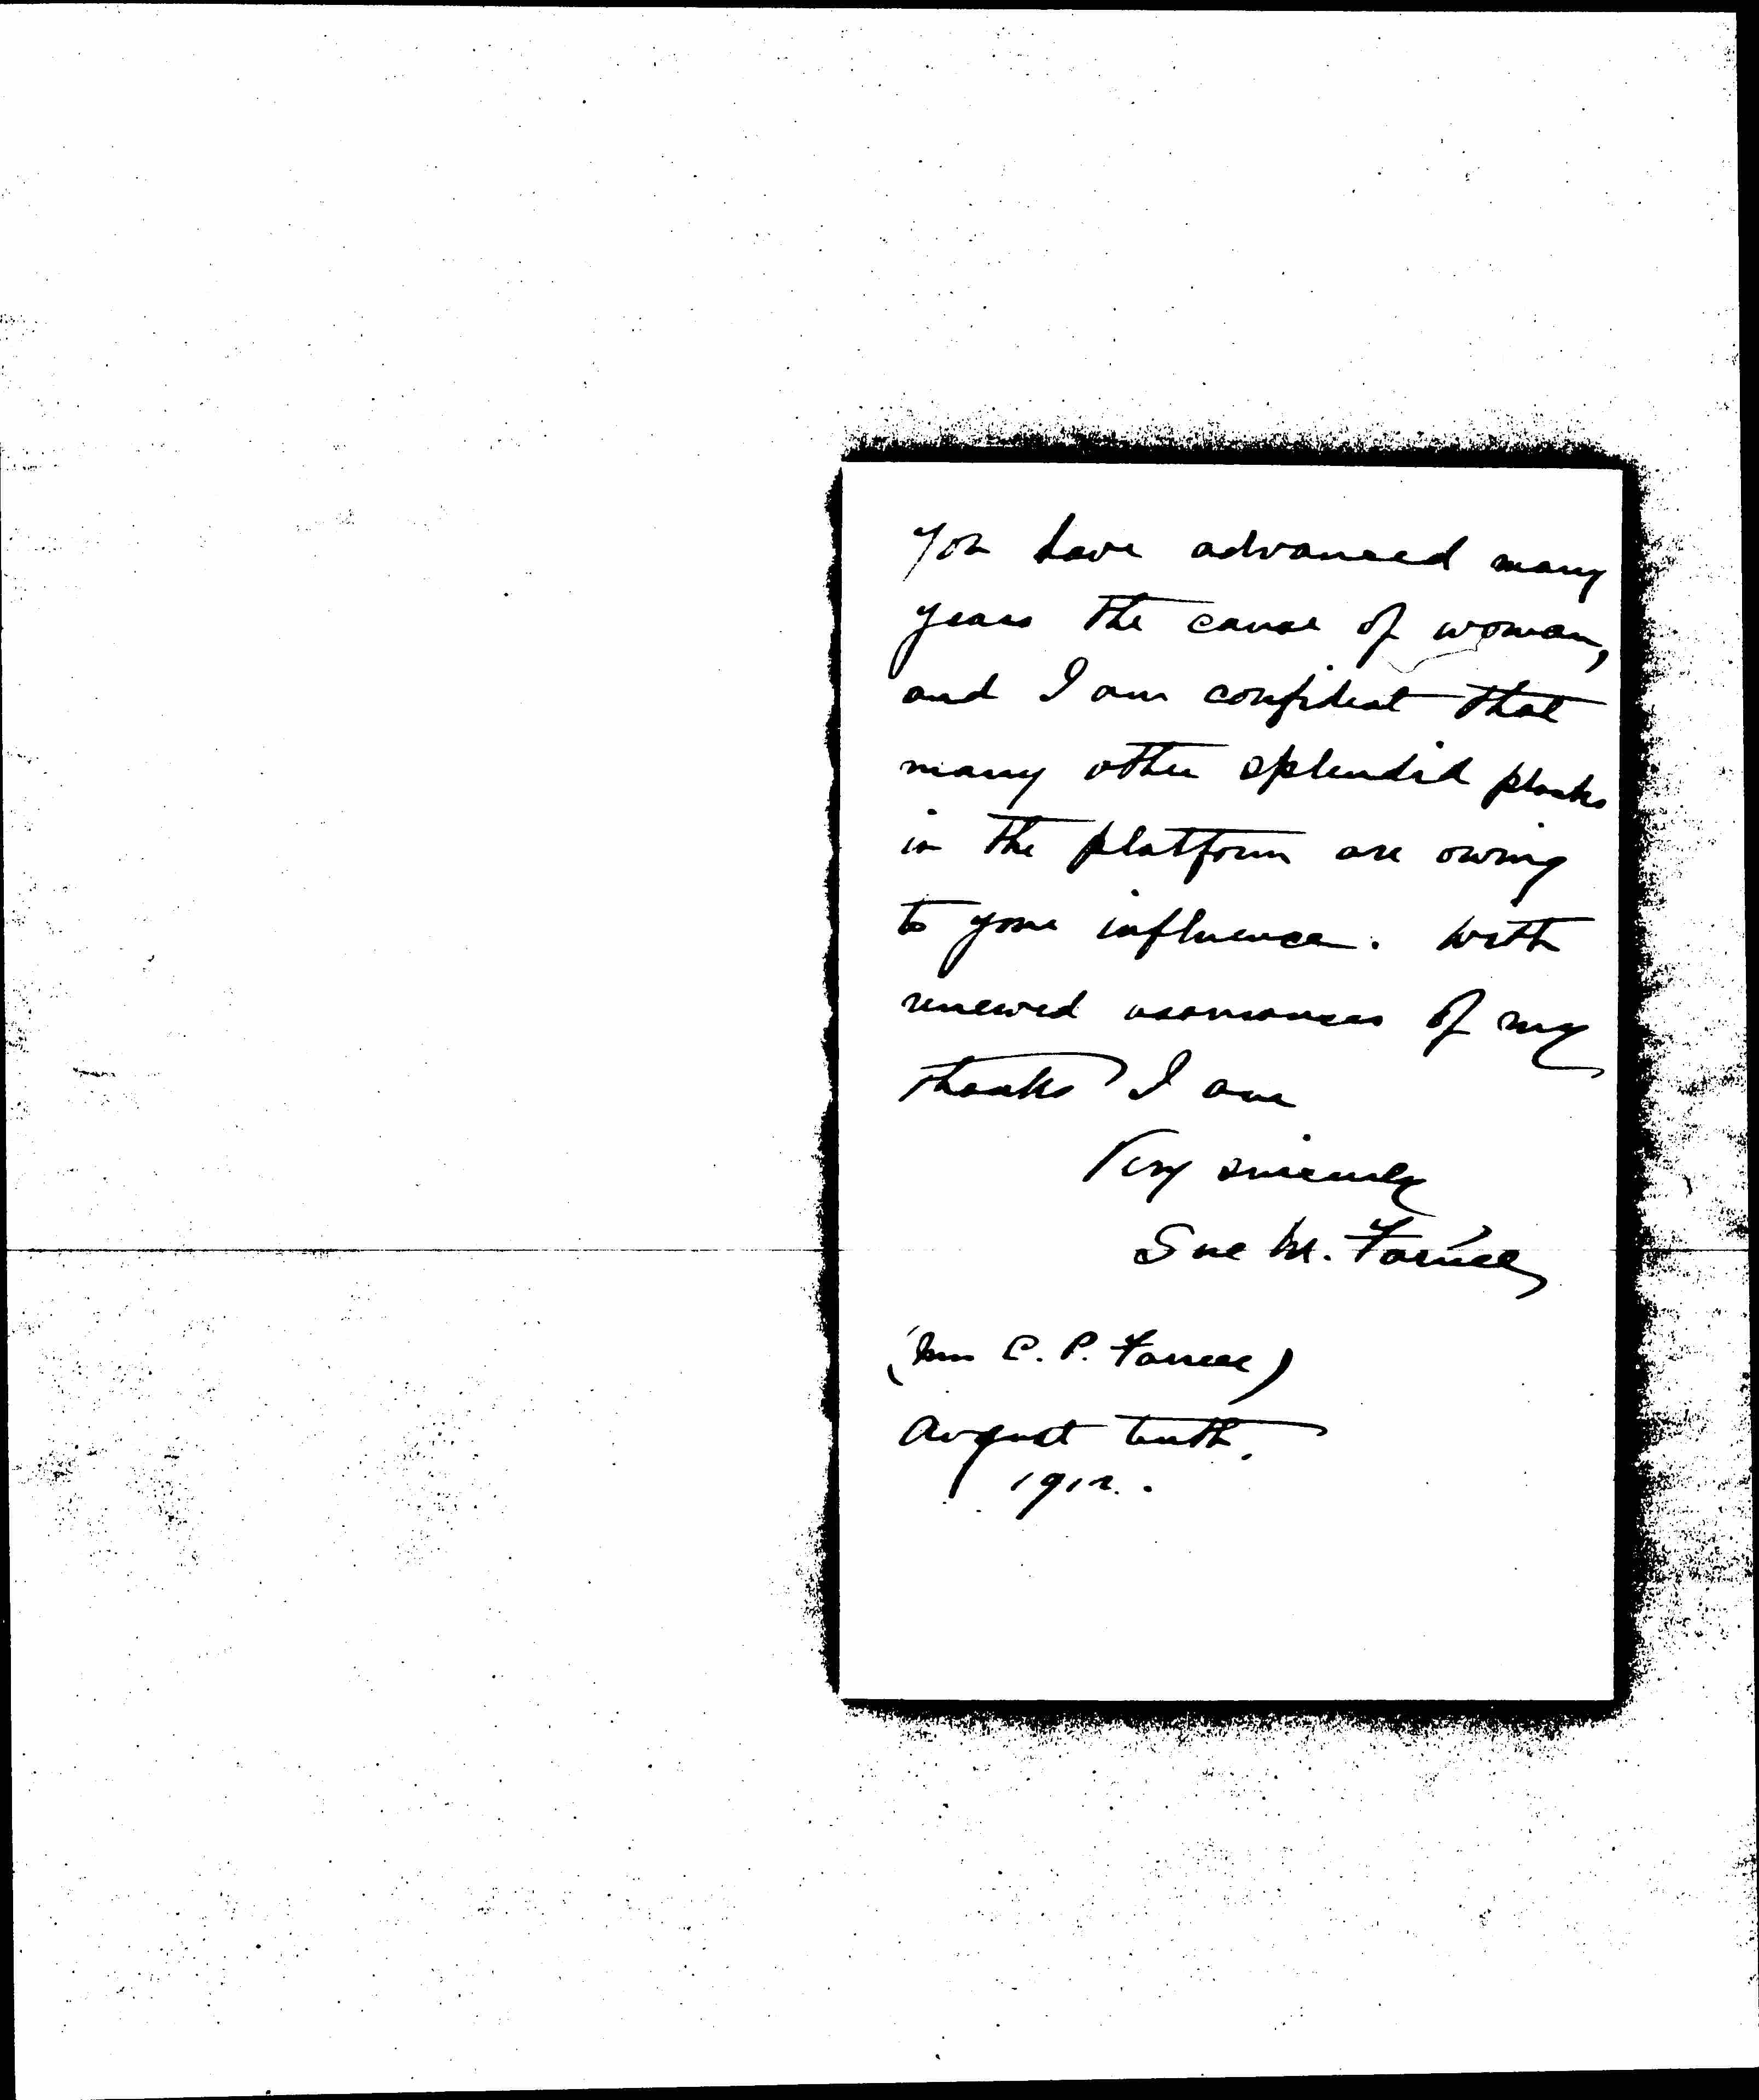 You have advanced many
years the cause of woman,
and I am confident that
many other splendid planks
in the platform are owing
to your influence. With
renewed assurances of my
thanks I am
Very sincerely
Sue M. Farrell
(Mrs C. P. Farrell)
August tenth.
1912.